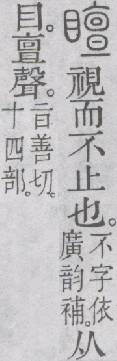 視而不止也。不字依
廣韵補。从
目。亶聲。㫖善切。
十四部。